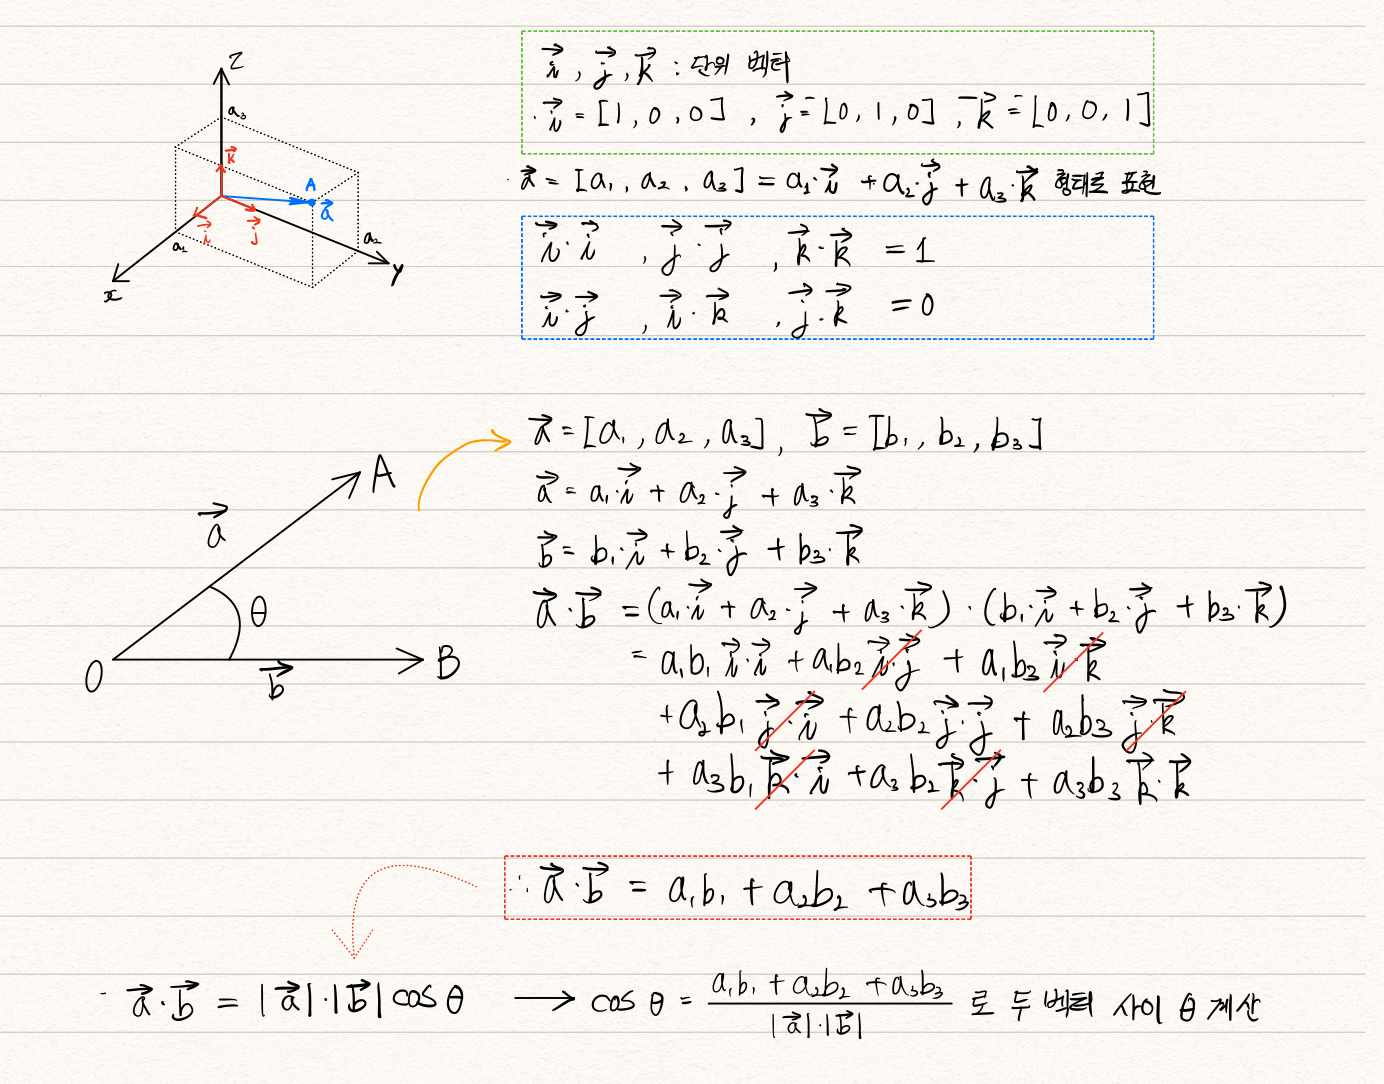 z
a₃
k⃗
A
a⃗
i⃗
j⃗
a₁
a₂
x
y
i⃗, j⃗, k⃗ : 단위 벡터
· i⃗ = [1, 0, 0], j⃗ = [0, 1, 0], k⃗ = [0, 0, 1]
· a⃗ = [a₁, a₂, a₃] = a₁·i⃗ + a₂·j⃗ + a₃·k⃗ 형태로 표현
i⃗·i⃗, j⃗·j⃗, k⃗·k⃗ = 1
i⃗·j⃗, i⃗·k⃗, j⃗·k⃗ = 0
A
a⃗
θ
O
b⃗
B
a⃗ = [a₁, a₂, a₃], b⃗ = [b₁, b₂, b₃]
a⃗ = a₁·i⃗ + a₂·j⃗ + a₃·k⃗
b⃗ = b₁·i⃗ + b₂·j⃗ + b₃·k⃗
a⃗·b⃗ = (a₁·i⃗ + a₂·j⃗ + a₃·k⃗)·(b₁·i⃗ + b₂·j⃗ + b₃·k⃗)
= a₁b₁ i⃗·i⃗ + a₁b₂ i⃗·j⃗ + a₁b₃ i⃗·k⃗
+ a₂b₁ j⃗·i⃗ + a₂b₂ j⃗·j⃗ + a₂b₃ j⃗·k⃗
+ a₃b₁ k⃗·i⃗ + a₃b₂ k⃗·j⃗ + a₃b₃ k⃗·k⃗
∴ a⃗·b⃗ = a₁b₁ + a₂b₂ + a₃b₃
· a⃗·b⃗ = |a⃗|·|b⃗| cos θ → cos θ = (a₁b₁ + a₂b₂ + a₃b₃) / (|a⃗|·|b⃗|) 로 두 벡터 사이 θ 계산